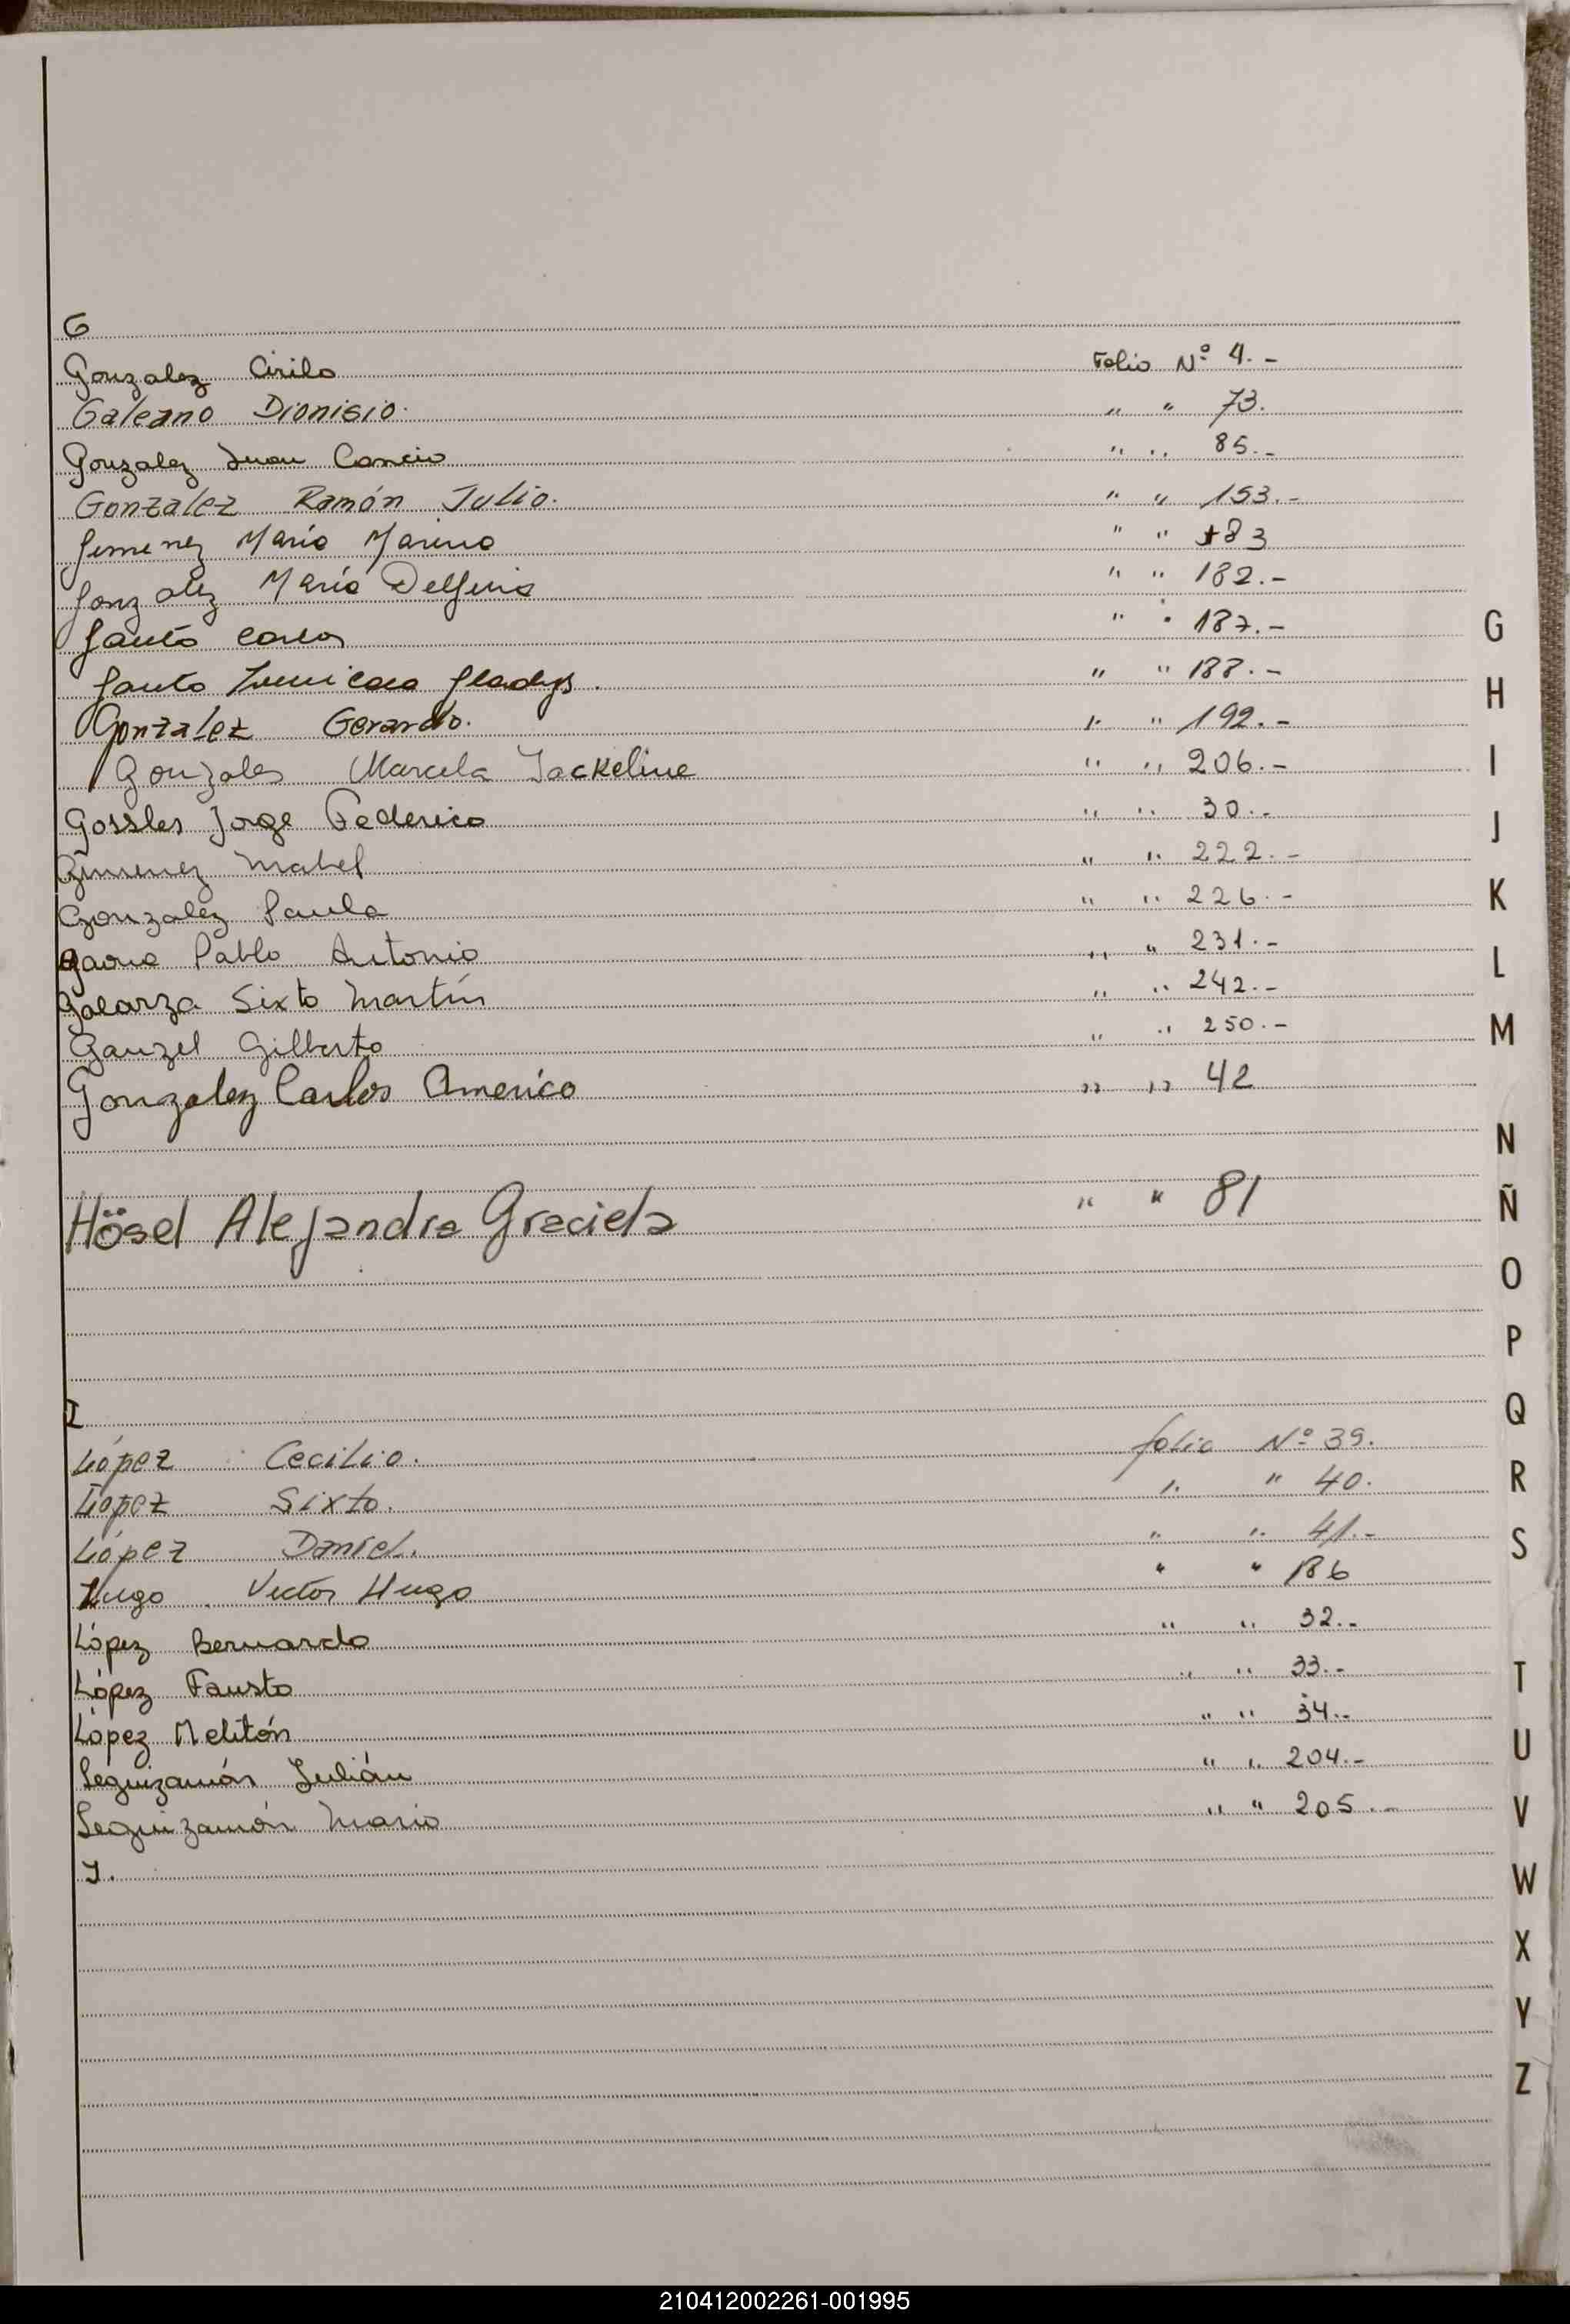 G
Gonzalez Cirilo Folio Nº 4.-
Galeano Dionisio. " " 73.
Gonzalez Juan Cancio " " 85.-
Gonzalez Ramón Julio. " " 153.-
Gimenez María Marina " " 183
Gonzalez María Delfina " " 182.-
Gauto Carlos " " 187.-
Gauto Gladys. " " 188.-
Gonzalez Gerardo. " " 192.-
Gonzales Marcela Jackeline " " 206.-
Gossler Jorge Federico " " 30.-
Gimenez Mabel " " 222.-
Gonzalez Paula " " 226.-
Gaona Pablo Antonio " " 231.-
Galarza Sixto Martín " " 242.-
Gauzel Gilberto " " 250.-
Gonzalez Carlos Americo " " 42
Hösel Alejandra Graciela " " 81
I
López Cecilio. folio Nº 39.
López Sixto. " " 40.
López Daniel. " " 41.-
Lugo Victor Hugo " " 186
López Bernardo " " 32.-
López Fausto " " 33.-
López Melitón " " 34.-
Leguizamón Julián " " 204.-
Leguizamón Mario " " 205.-
J.
G
H
I
J
K
L
M
N
Ñ
O
P
Q
R
S
T
U
V
W
X
Y
Z
210412002261-001995